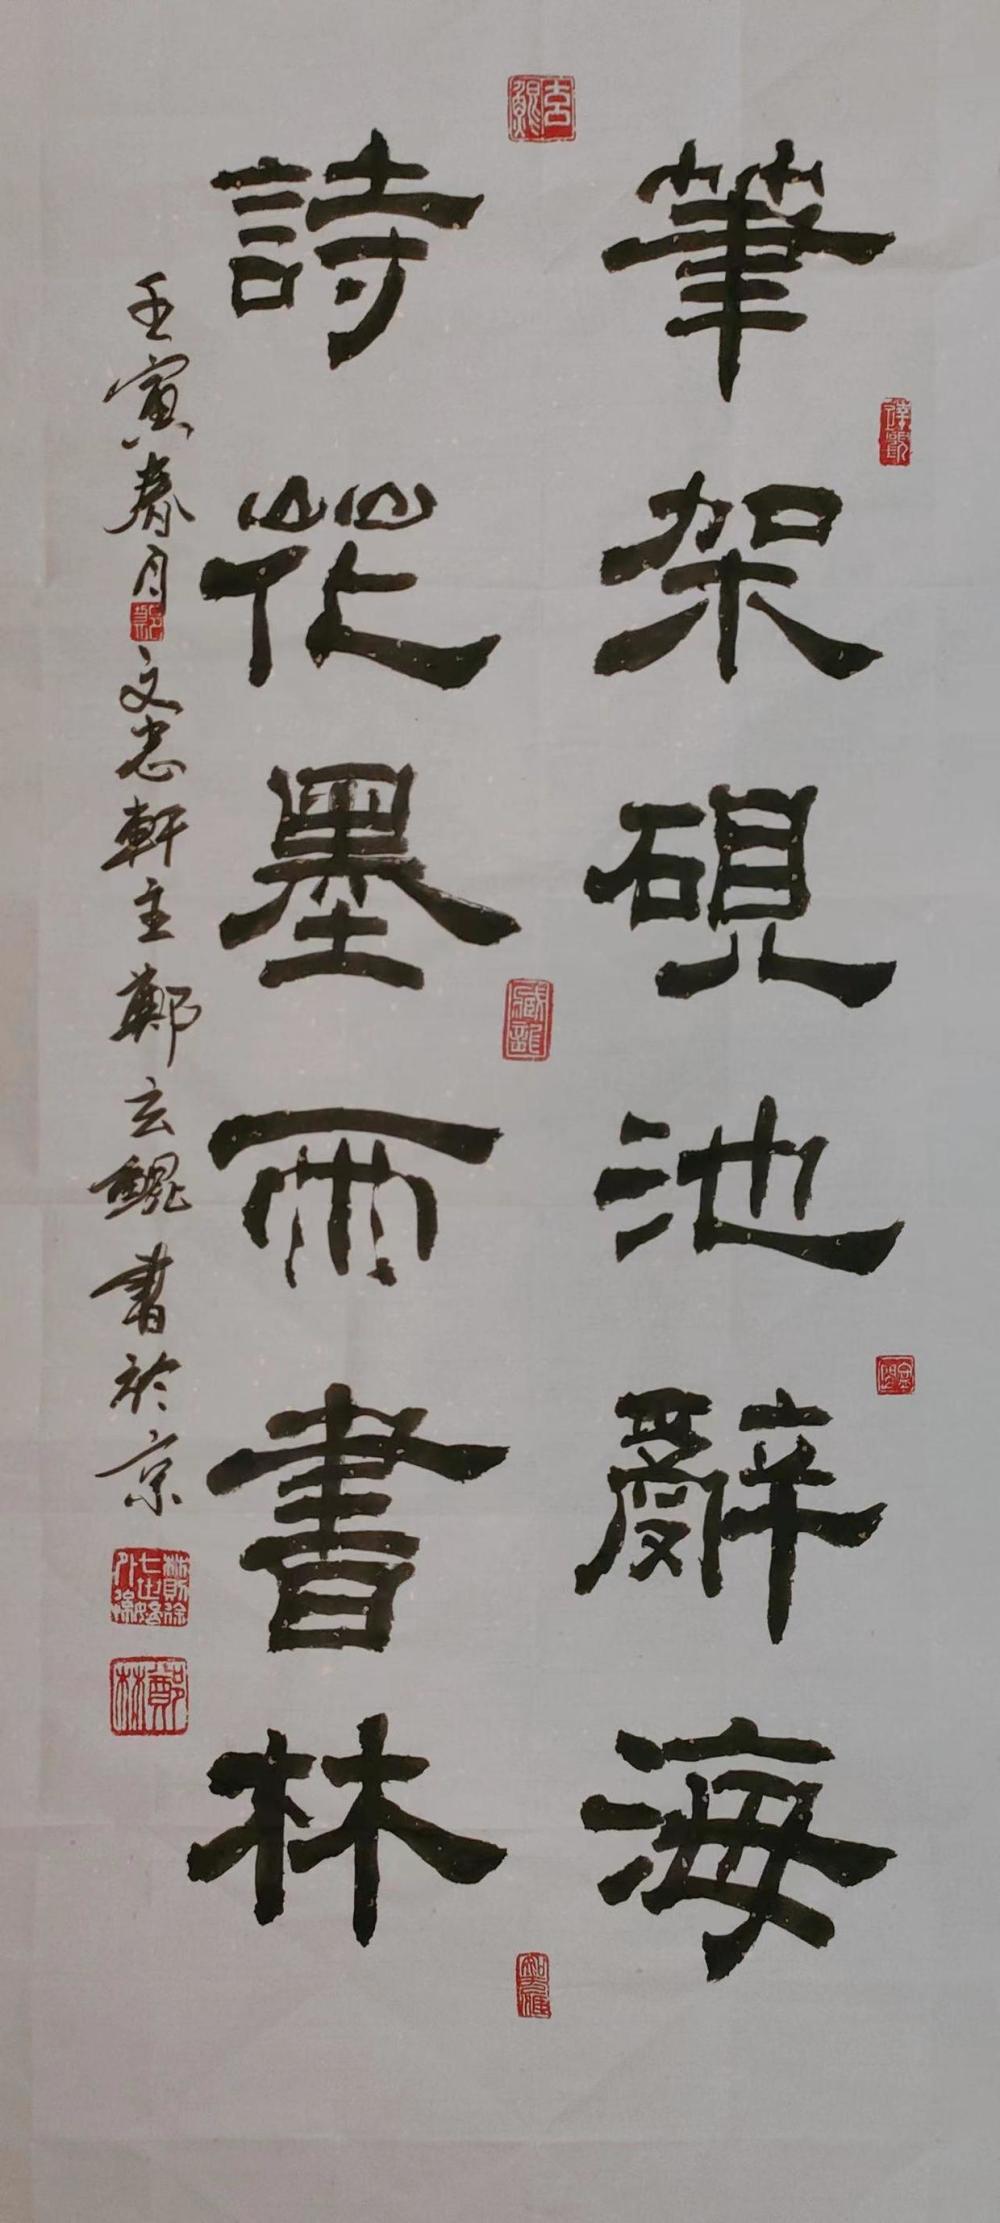 筆架硯池辭海
詩花墨雨書林
壬寅春月文忠軒主鄭玄鯤書於京
鄭林